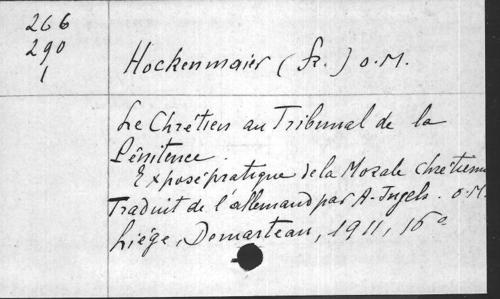 266
290
1
Hockenmaier (fr.) o.M.
Le Chrétien au Tribunal de la
Pénitence.
Exposé pratique de la Morale Chrétienne
Traduit de l'allemand par A. Ingels. O.M.
Liége, Demarteau, 1911, 16°